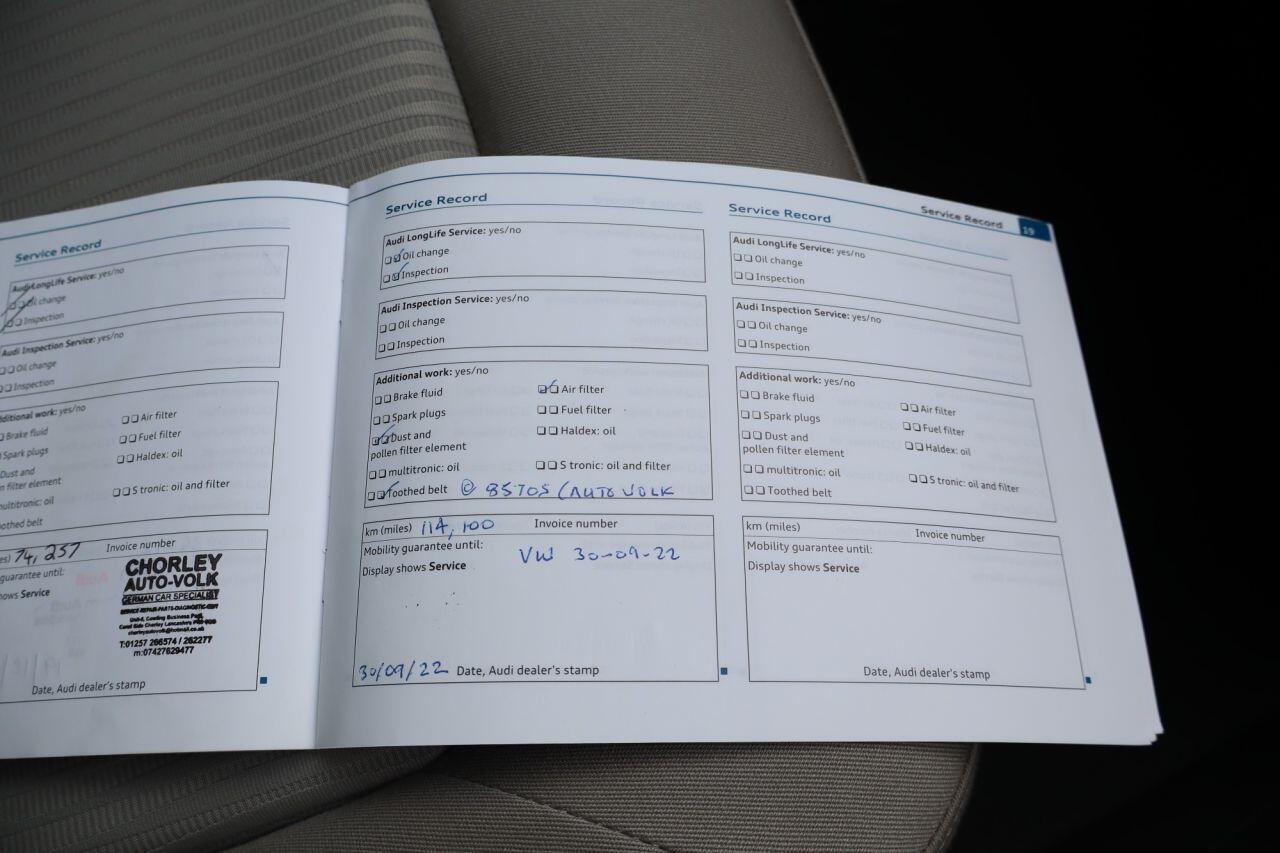 Service Record
Audi LongLife Service: yes/no
Oil change
Inspection
Audi Inspection Service: yes/no
Oil change
Inspection
Additional work: yes/no
Brake fluid
Air filter
Spark plugs
Fuel filter
Dust and
filter element
Haldex: oil
multitronic: oil
S tronic: oil and filter
Toothed belt
74,257 Invoice number
guarantee until:
shows Service
CHORLEY
AUTO-VOLK
GERMAN CAR SPECIALIST
SERVICE-REPAIR-PARTS-DIAGNOSTIC
Cowling Business Park,
Canal Side Chorley Lancashire
chorleyautovolk@hotmail.co.uk
T:01257 266574 / 262277
m:07427629477
Date, Audi dealer's stamp
Service Record
Audi LongLife Service: yes/no
Oil change
Inspection
Audi Inspection Service: yes/no
Oil change
Inspection
Additional work: yes/no
Brake fluid
Air filter
Spark plugs
Fuel filter
Dust and
pollen filter element
Haldex: oil
multitronic: oil
S tronic: oil and filter
Toothed belt @ 85705 (AUTO VOLK
km (miles) 114,100 Invoice number
Mobility guarantee until:
VW 30-09-22
Display shows Service
30/09/22 Date, Audi dealer's stamp
Service Record 19
Service Record
Audi LongLife Service: yes/no
Oil change
Inspection
Audi Inspection Service: yes/no
Oil change
Inspection
Additional work: yes/no
Brake fluid
Air filter
Spark plugs
Fuel filter
Dust and
pollen filter element
Haldex: oil
multitronic: oil
S tronic: oil and filter
Toothed belt
km (miles) Invoice number
Mobility guarantee until:
Display shows Service
Date, Audi dealer's stamp